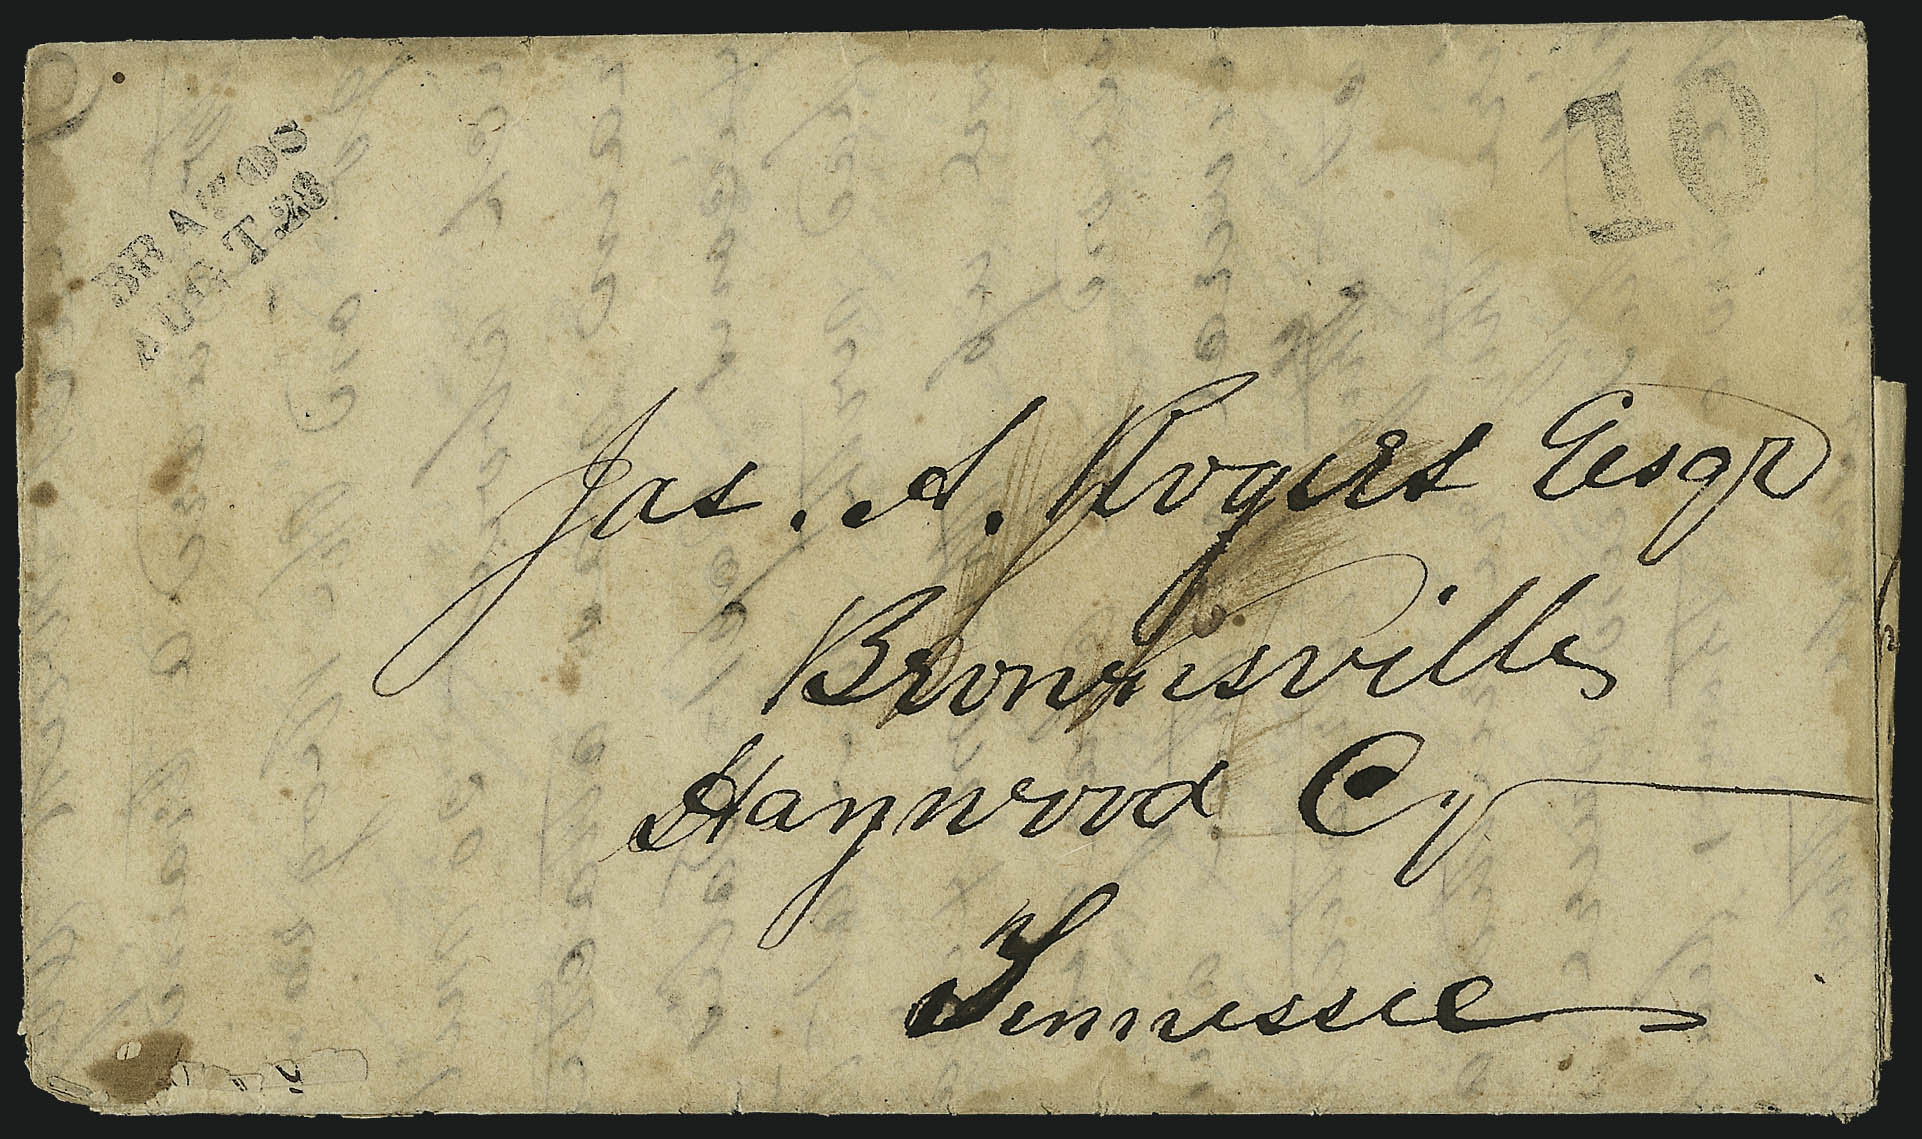 BRAZOS
AUGT.28
10
Jas. A. Rogers Esqr
Brownsville
Haywood Cy
Tennessee